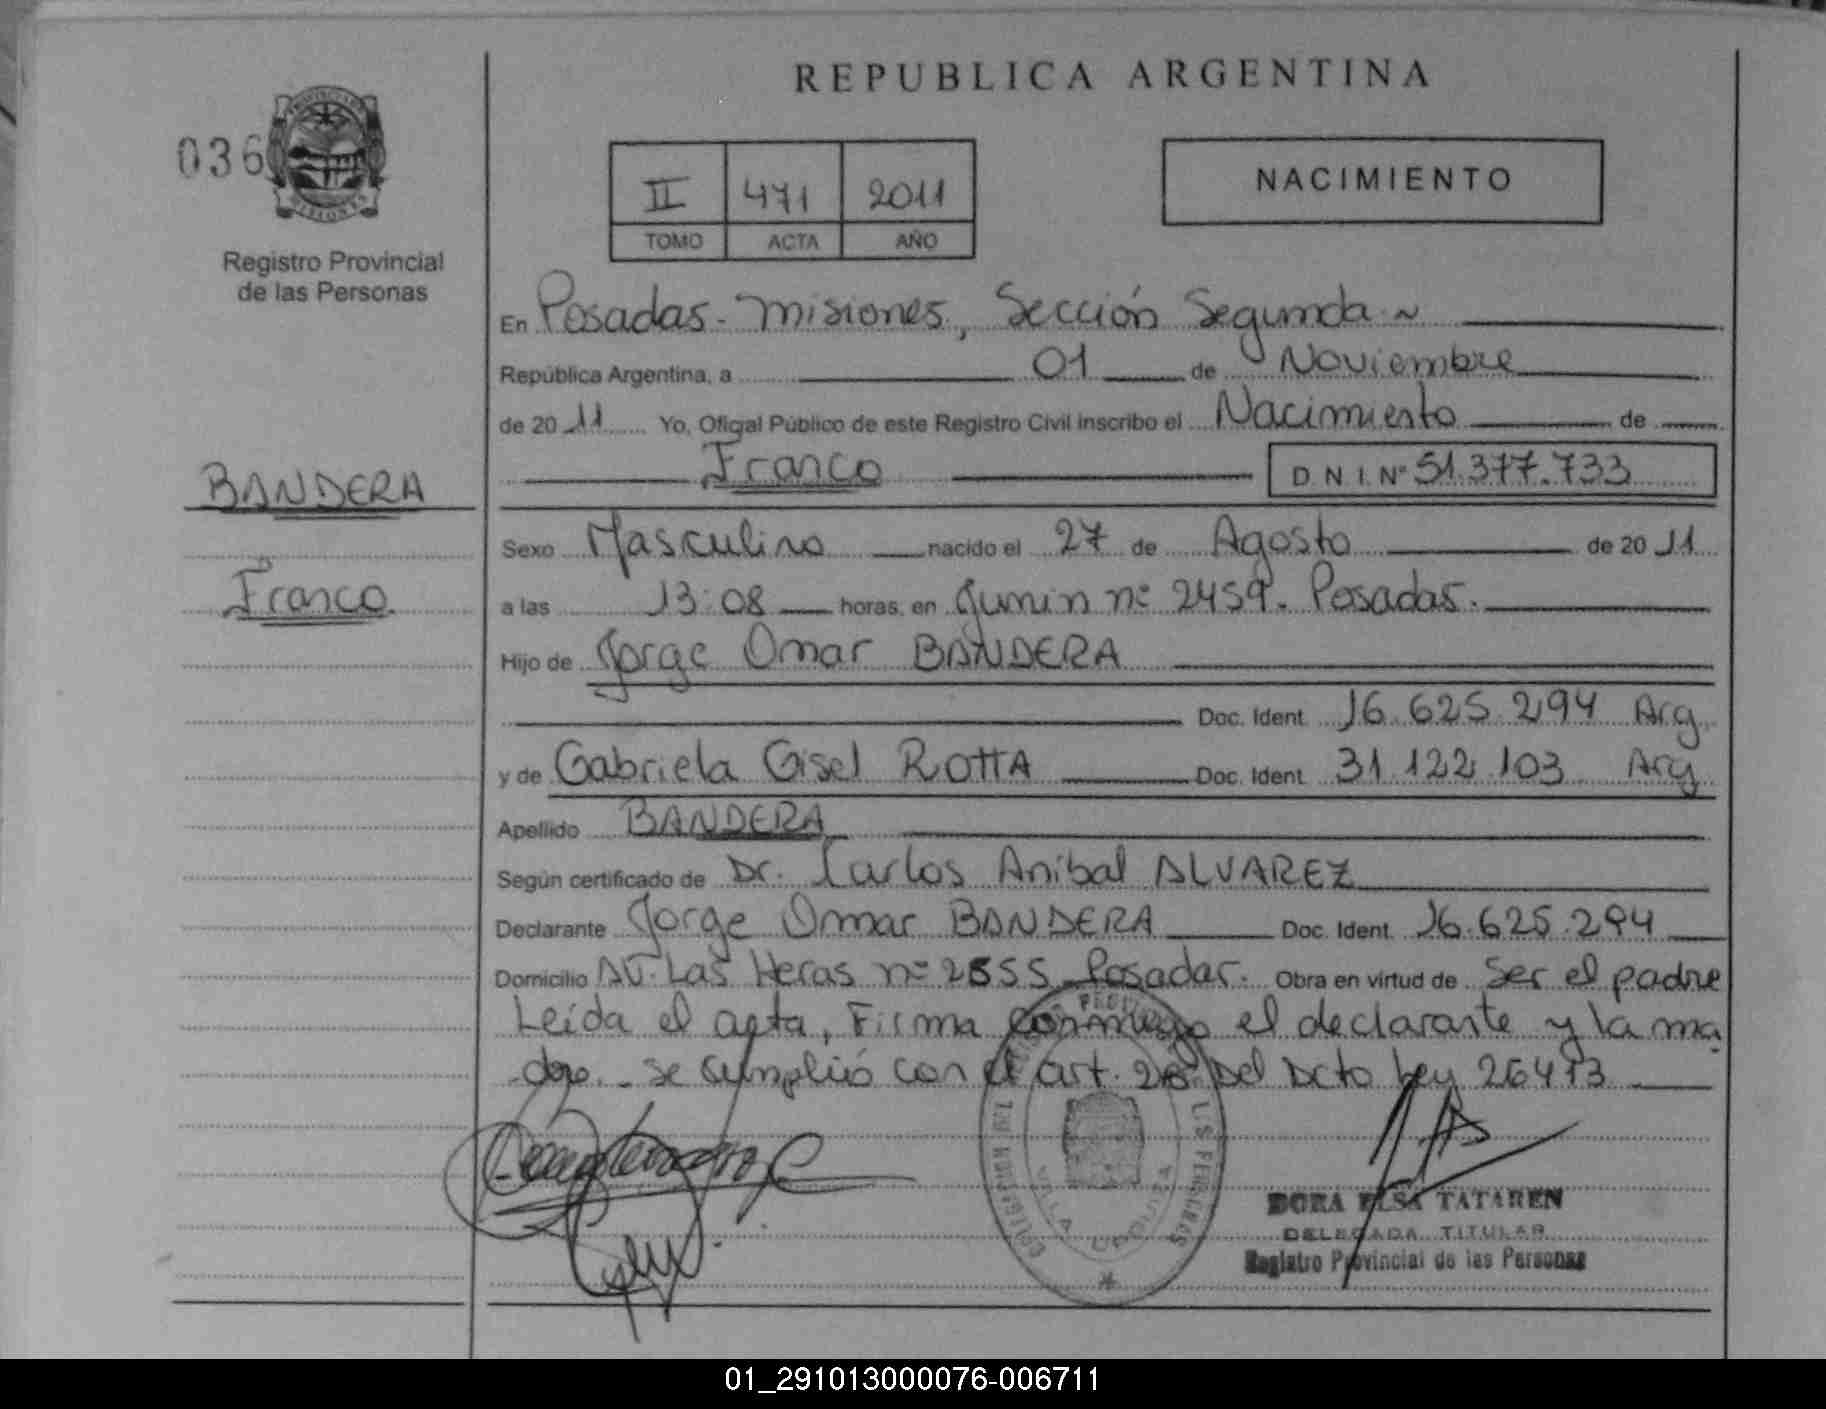 REPUBLICA ARGENTINA
036
PROVINCIA DE MISIONES
Registro Provincial
de las Personas
II 471 2011
TOMO ACTA AÑO
NACIMIENTO
En Posadas - Misiones, Sección Segunda ~
República Argentina, a 01 de Noviembre
de 2011 Yo, Oficial Público de este Registro Civil inscribo el Nacimiento de
Franco D.N.I. Nº 51.377.733
BANDERA
Franco
Sexo Masculino nacido el 27 de Agosto de 2011
a las 13:08 horas, en Junin nº 2459. Posadas.
Hijo de Jorge Omar BANDERA
Doc. Ident. 16.625.294 Arg.
y de Gabriela Gisel ROTTA Doc. Ident. 31.122.103 Arg
Apellido BANDERA
Según certificado de Dr. Carlos Anibal ALVAREZ
Declarante Jorge Omar BANDERA Doc. Ident. 16.625.294
Domicilio AV. Las Heras nº 2555 Posadas. Obra en virtud de Ser el padre
Leída el acta, Firma conmigo el declarante y la ma
dre. - se cumplió con el art. 28 Del Dcto Ley 26413
DORA ELSA TATAREN
DELEGADA TITULAR
Registro Provincial de las Personas
VILLA URQUIZA
01_291013000076-006711